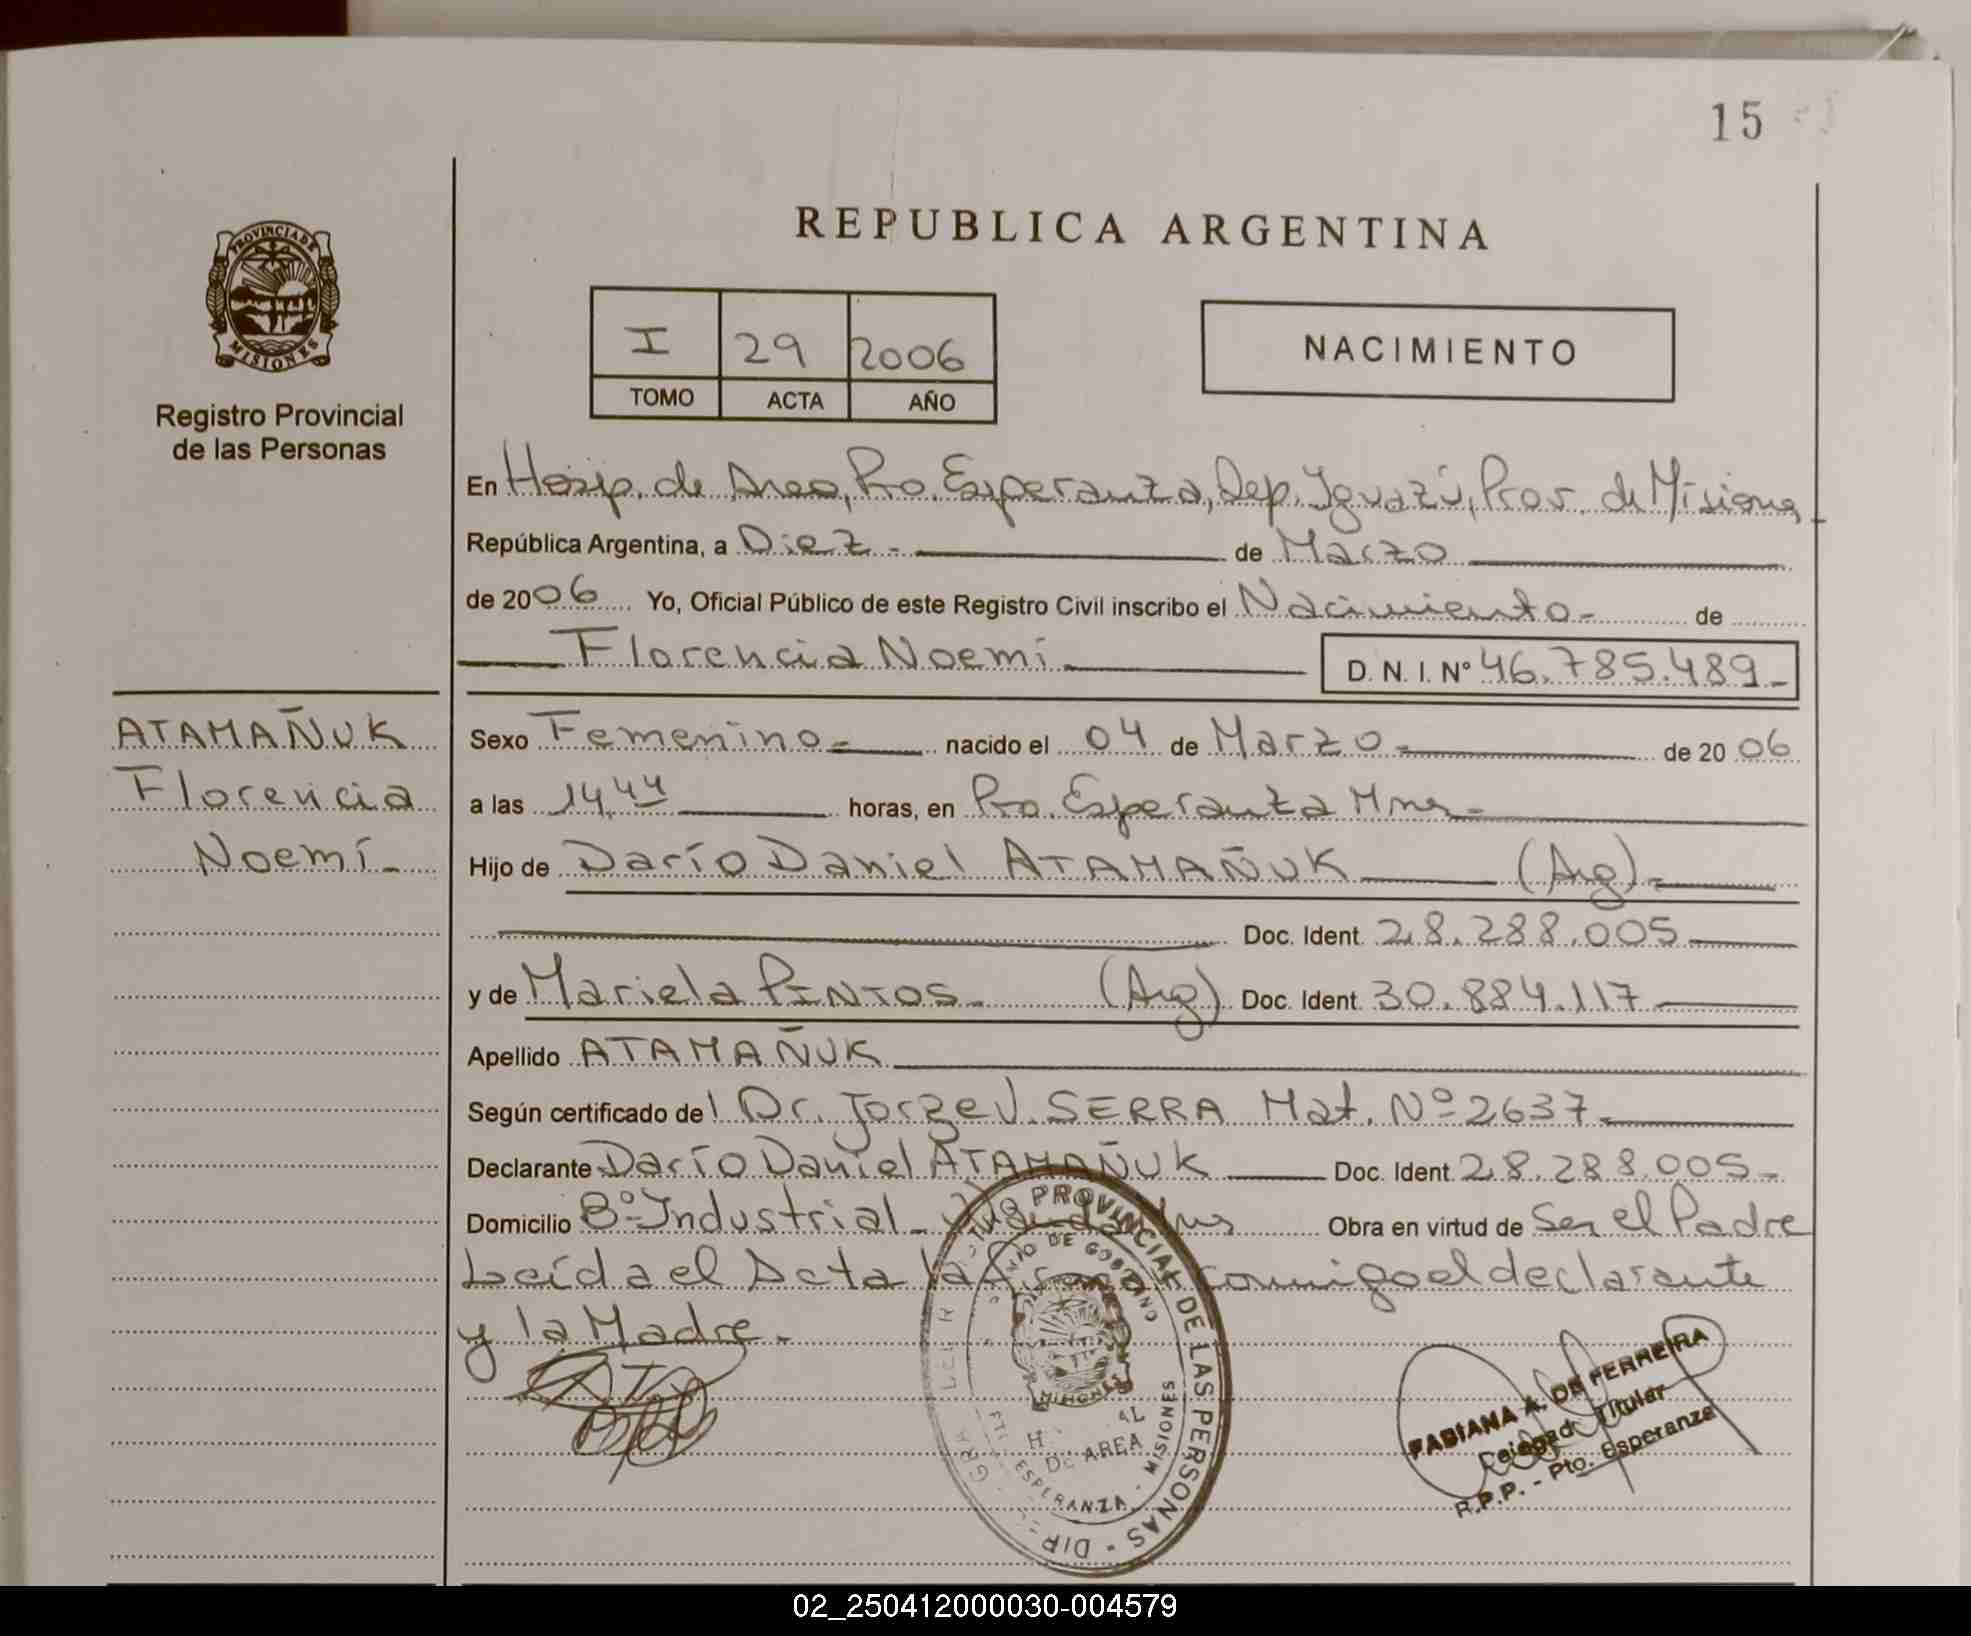 15
PROVINCIA DE
MISIONES
Registro Provincial
de las Personas
REPUBLICA ARGENTINA
I 29 2006
TOMO ACTA AÑO
NACIMIENTO
En Hosp. de Area, Pto. Esperanza, Dep. Iguazú, Prov. de Misiones
República Argentina, a Diez.- de Marzo
de 2006 Yo, Oficial Público de este Registro Civil inscribo el Nacimiento- de
Florencia Noemí D. N. I. Nº 46.785.489-
ATAMAÑUK
Florencia
Noemí-
Sexo Femenino- nacido el 04 de Marzo- de 2006
a las 14,44 horas, en Pto. Esperanza Mnes-
Hijo de Darío Daniel ATAMAÑUK (Arg)-
Doc. Ident. 28.288.005
y de Mariela PINTOS- (Arg) Doc. Ident. 30.884.117
Apellido ATAMAÑUK
Según certificado de Dr. Jorge V. SERRA Mat. Nº 2637-
Declarante Darío Daniel ATAMAÑUK Doc. Ident. 28.288.005-
Domicilio Bº Industrial- Obra en virtud de Ser el Padre
Leída el Acta la conmigo el declarante
y la Madre.
PROVINCIAL DE LAS PERSONAS - DIR
DE GOBIERNO
MISIONES
DE AREA
ESPERANZA - MISIONES
FABIANA A. DE FERREIRA
Delegada Titular
R.P.P. - Pto. Esperanza
02_250412000030-004579